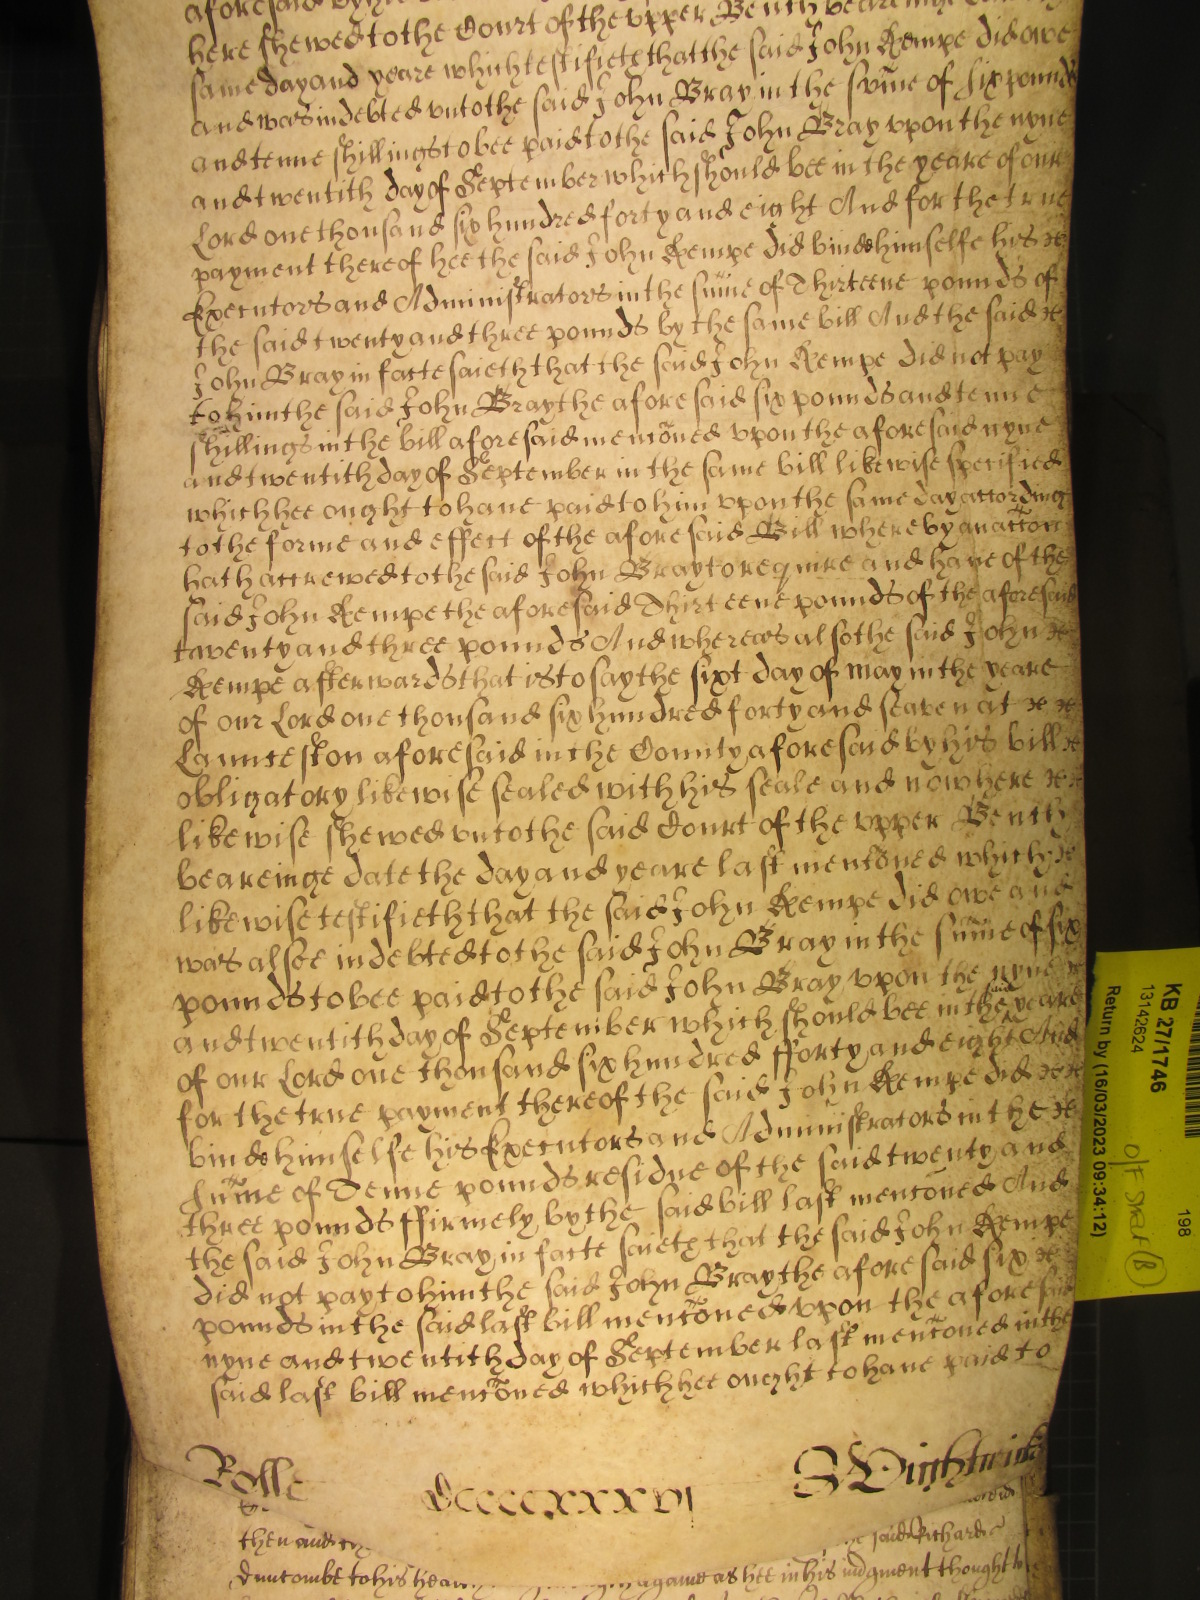 aforesaid by his
here shewed to the Court of the vpper Bench beareinge
same day and yeare which testifieth that the said John Kempe did owe
and was indebted vnto the said John Bray in the sum̄e of six pounds
and tenne shillings to bee paid to the said John Bray vpon the nyne
and twentith day of September which should bee in the yeare of our
Lord one thousand six hundred forty and eight And for the true
payment thereof hee the said John Kempe did binde himselfe his
Executors and Administrators in the sum̄e of Thirteene pounds of
the said twenty and three pounds by the same bill And the said
John Bray in facte saieth that the said John Kempe did not pay
to him the said John Bray the aforesaid six pounds and tenne
shillings in the bill aforesaid menc̄oned vpon the aforesaid nyne
and twentith day of September in the same bill likewise specified
which hee ought to haue paid to him vpon the same day according
to the forme and effect of the aforesaid Bill whereby an acc̄on
hath accrewed to the said John Bray to require and haue of the
said John Kempe the aforesaid Thirteene pounds of the aforesaid
twenty and three pounds And whereas also the said John
Kempe afterwards that is to say the sixt day of may in the yeare
of our Lord one thousand six hundred forty and seaven at
Launceston aforesaid in the County aforesaid by his bill
obligatory likewise sealed with his seale and now here
likewise shewed vnto the said Court of the vpper Bench
beareinge date the day and yeare last menc̄oned which
likewise testifieth that the said John Kempe did owe and
was alsoe indebted to the said John Bray in the sum̄e of six
pounds to bee paid to the said John Bray vpon the nyne
and twentith day of September which should bee in the yeare
of our Lord one thousand six hundred fforty and eight And
for the true payment thereof the said John Kempe did
binde himselfe his Executors and Administrators in the
sum̄e of Tenne pounds residue of the said twenty and
three pounds ffirmely by the said bill last menc̄oned And
the said John Bray in facte saieth that the said John Kempe
did not pay to him the said John Bray the aforesaid six
pounds in the said last bill menc̄oned vpon the aforesaid
nyne and twentith day of September last menc̄oned in the
said last bill menc̄oned which hee ought to haue paid to
Rolle
Dccccxxxvj
Wightwick
then and
said Richard
Duncombe to his
againe as hee in his iudgment thought
KB 27/1746
13142624
198
Return by (16/03/2023 09:34:12)